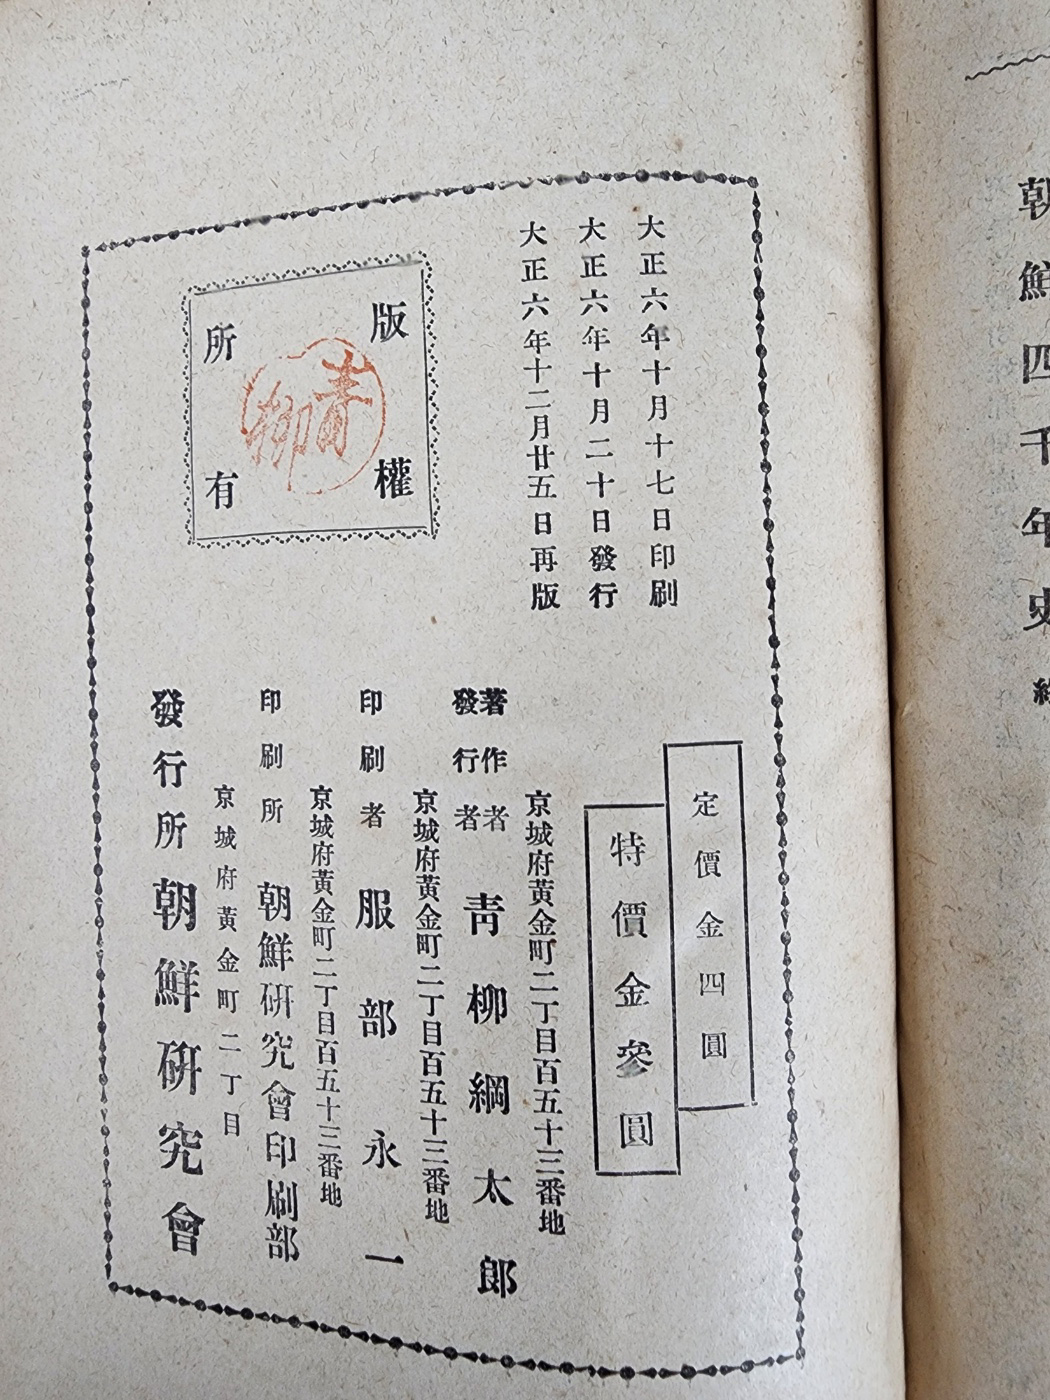 朝鮮四千年史 終
大正六年十月十七日印刷
大正六年十月二十日發行
大正六年十二月廿五日再版
版權
所有
青
柳
定價金四圓
特價金參圓
京城府黃金町二丁目百五十三番地
著作者
發行者
靑柳綱太郞
京城府黃金町二丁目百五十三番地
印刷者 服部永一
京城府黃金町二丁目百五十三番地
印刷所 朝鮮硏究會印刷部
京城府黃金町二丁目
發行所 朝鮮硏究會